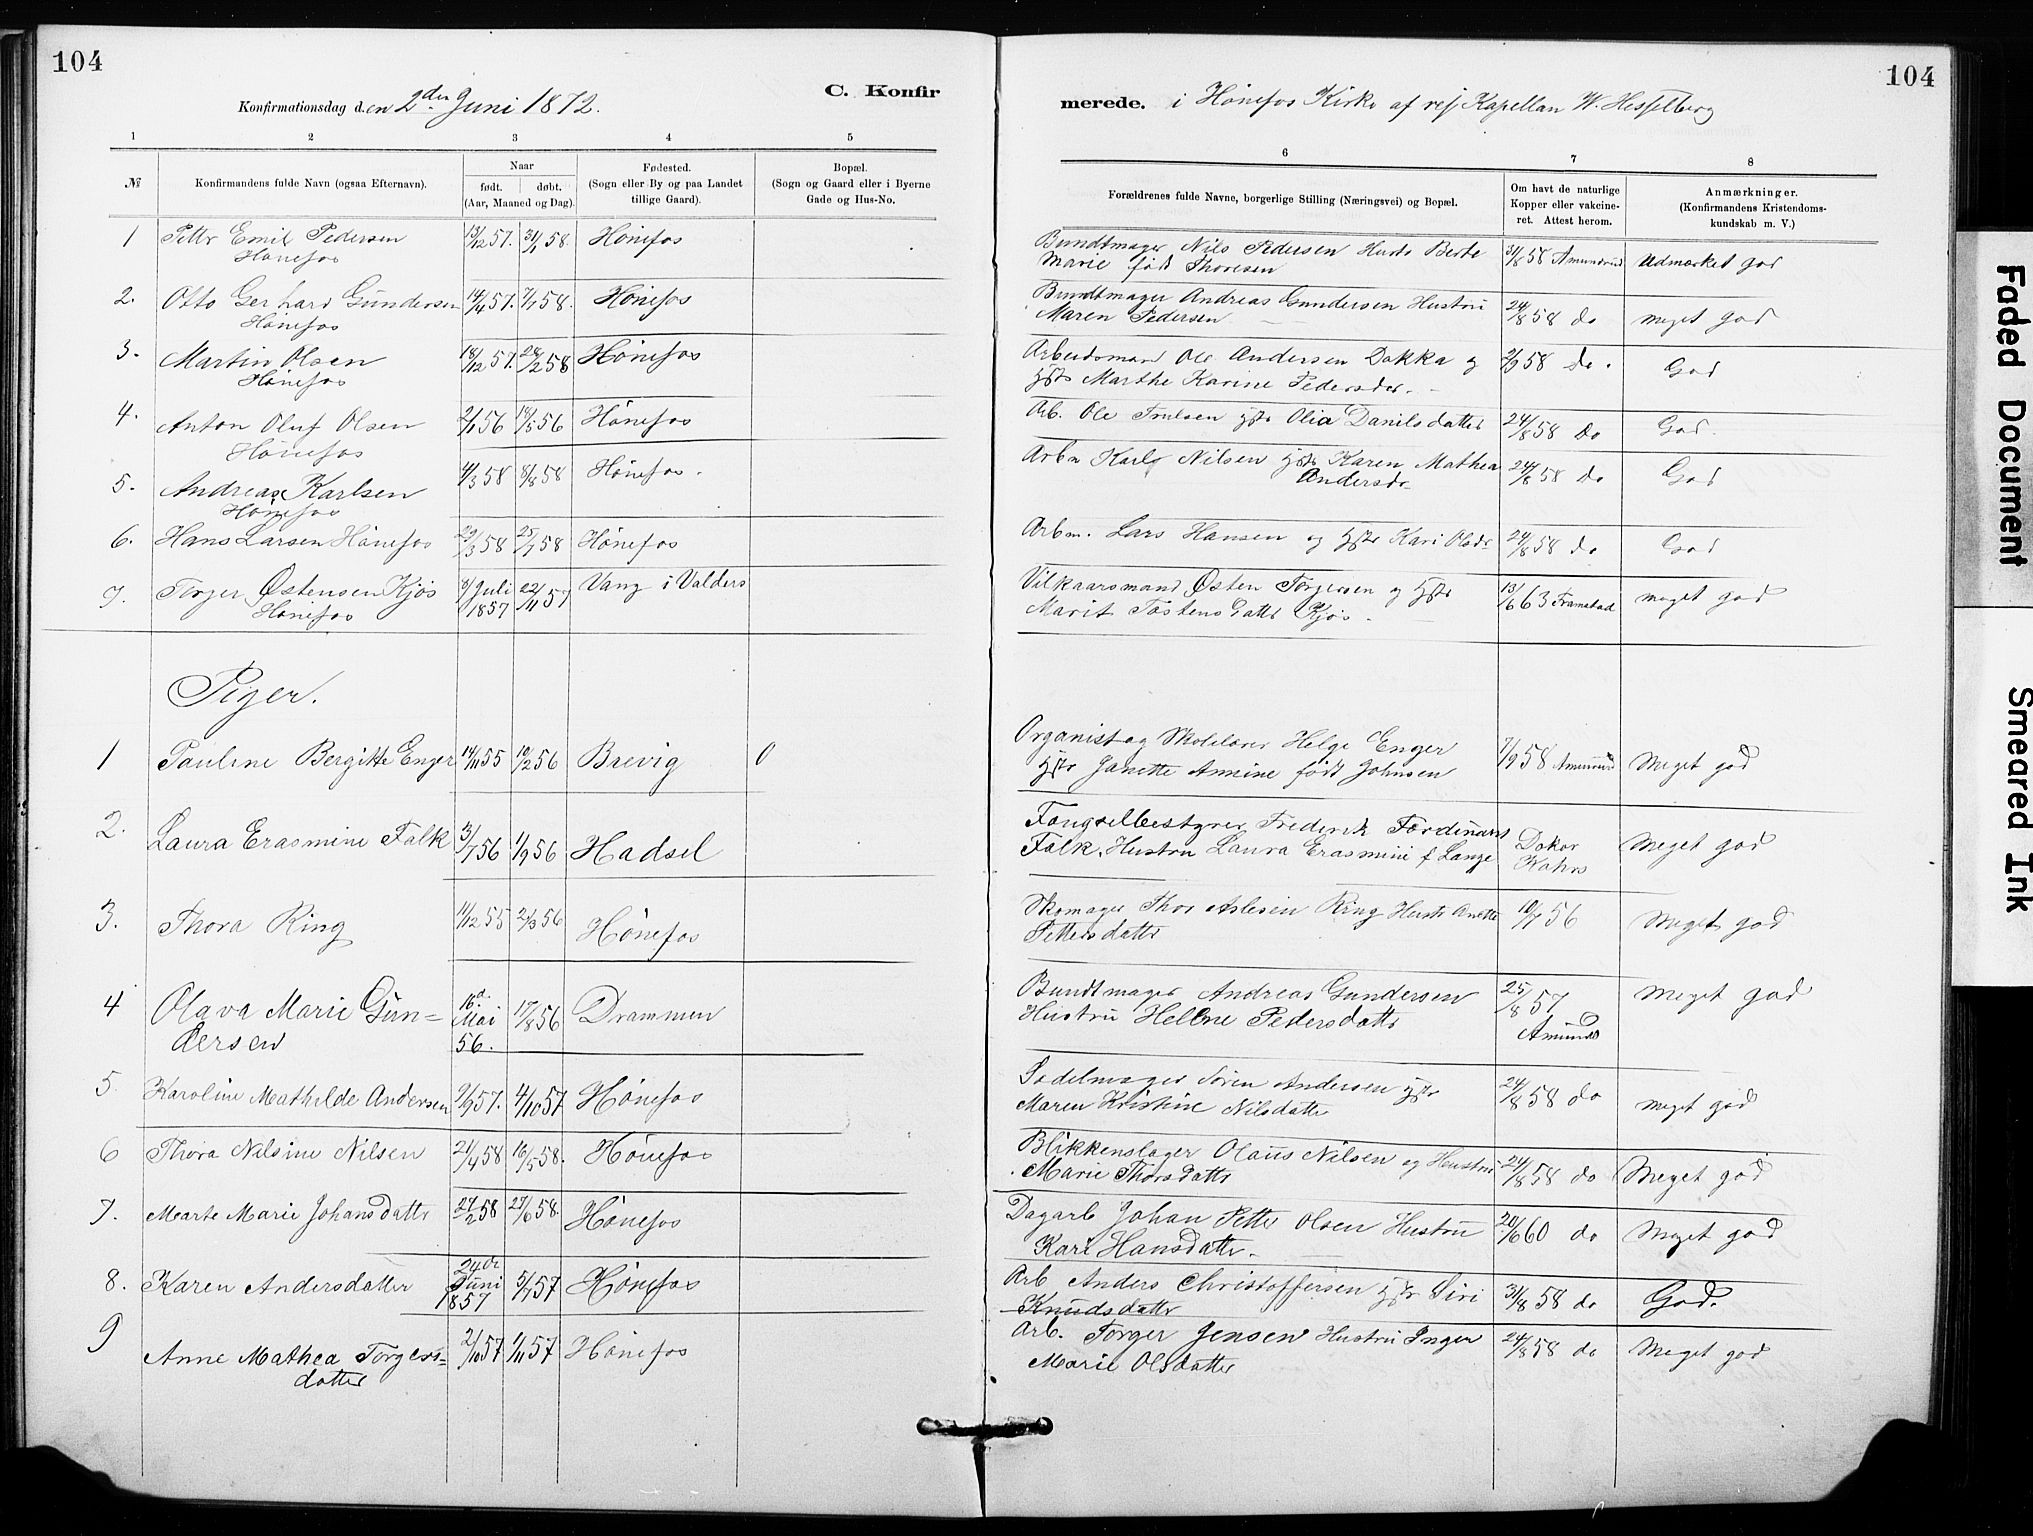 104
104
Konfirmationsdag d. en 2den Juni 1872.
C. Konfir
merede. i Hønefos Kirke af resj Kapellan W. Hesselberg
1 2 3 4 5
6 7 8
№
Konfirmandens fulde Navn (ogsaa Efternavn).
Naar
født. døbt.
(Aar, Maaned og Dag).
Fødested.
(Sogn eller By og paa Landet
tillige Gaard).
Bopæl.
(Sogn og Gaard eller i Byerne
Gade og Hus-No.
Forældrenes fulde Navne, borgerlige Stilling (Næringsvei) og Bopæl.
Om havt de naturlige
Kopper eller vakcine-
ret. Attest herom.
Anmærkninger.
(Konfirmandens Kristendoms-
kundskab m. V.)
1 Petter Emil Pedersen 13/12 57. 31/1 58. Hønefos
Hønefos
Bundtmager Nils Pedersen Hustr Berte 31/8 58 Amundrud Udmærket god
Marie født Thoresen
2. Otto Gerhard Gundersen 14/4 57. 7/1 58. Hønefos
Hønefos
Bundtmager Andreas Gundersen Hustru 24/8 58 do meget god
Maren Pedersen
3. Martin Olsen 18/12 57. 28/2 58 Hønefos
Hønefos
Arbeidsmand Ole Andersen Dokka og 2/9 58 do. God
Hstr Marthe Karine Pedersdr.
4. Anton Oluf Olsen 2/1 56 18/5 56 Hønefos
Hønefos
Arb. Ole Trulsen Hstr Olia Danilsdatter 24/8 58 Do God.
5. Andreas Karlsen 4/3 58 8/8 58 Hønefos.
Hønefos
Arbm Karl Nilsen Hstr Karen Mathea 24/8 58 Do God
Andersdr
6. Hans Larsen Hønefos 29/3 58 25/7 58 Hønefos
Arbm. Lars Hansen og Hstr Kari Olsdr 24/8 58 do God
7. Torger Østensen Kjøs 8/Juli 1857 22/11 57 Vang i Valders
Hønefos
Vilkaarsmand Østen Torgersen og Hstr 13/6 63 Framstad meget god
Marit Tostensdatter Kjøs.
Piger.
1 Pauline Bergitte Enger 14/11 55 10/2 56 Brevig 0
Organist og Skolelærer Helge Enger 7/9 58 Amunrud Meget god
Hstr Janette Annine født Johnsen
2. Laura Erasmine Falk 3/7 56 1/9 56 Hadsel
Fængselbestyrer Frederik Ferdinant
Falk. Hustru Laura Erasmine f Lange Doktor Kahrs Meget god
3. Thora Ring 11/12 55 2/3 56 Hønefos
Skomager Thor Aslesen Ring Hustr Anette 10/7 56 Meget god
Pettersdatter
4 Olava Marie Gun= 16d. Mai 56. 17/8 56 Drammen
dersen
Bundtmager Andreas Gundersen 25/8 57 Meget god
Hustru Hellene Pedersdatter Amunds
5. Karoline Mathilde Andersen 9/9 57. 4/10 57 Hønefos
Sadelmager Søren Andersen Hstr 24/8 58 do meget god
Maren Kristine Nilsdatter
6 Thora Nilsine Nilsen 21/4 58 16/5 58. Hønefos
Blikkenslager Olaus Nilsen og Hustru 24/8 58 do Meget god
Marie Thorsdatter
7. Marte Marie Johansdatter 24/2 58 27/6 58. Hønefos
Dagarb Johan Petter Olsen Hustru 20/6 60 do Meget god
Kari Hansdatter.
8. Karen Andersdatter 24de Juni 1857 5/7 57 Hønefos
Arb Anders Christoffersen Hstr Siri 31/8 58 do God.
Knudsdatter
9 Anne Mathea Torgers= 2/10 57 1/11 57 Hønefos
datter
Arb. Torger Jensen Hustru Inger 24/8 58 do Meget god
Marie Olsdatter
Faded Document
Smeared Ink